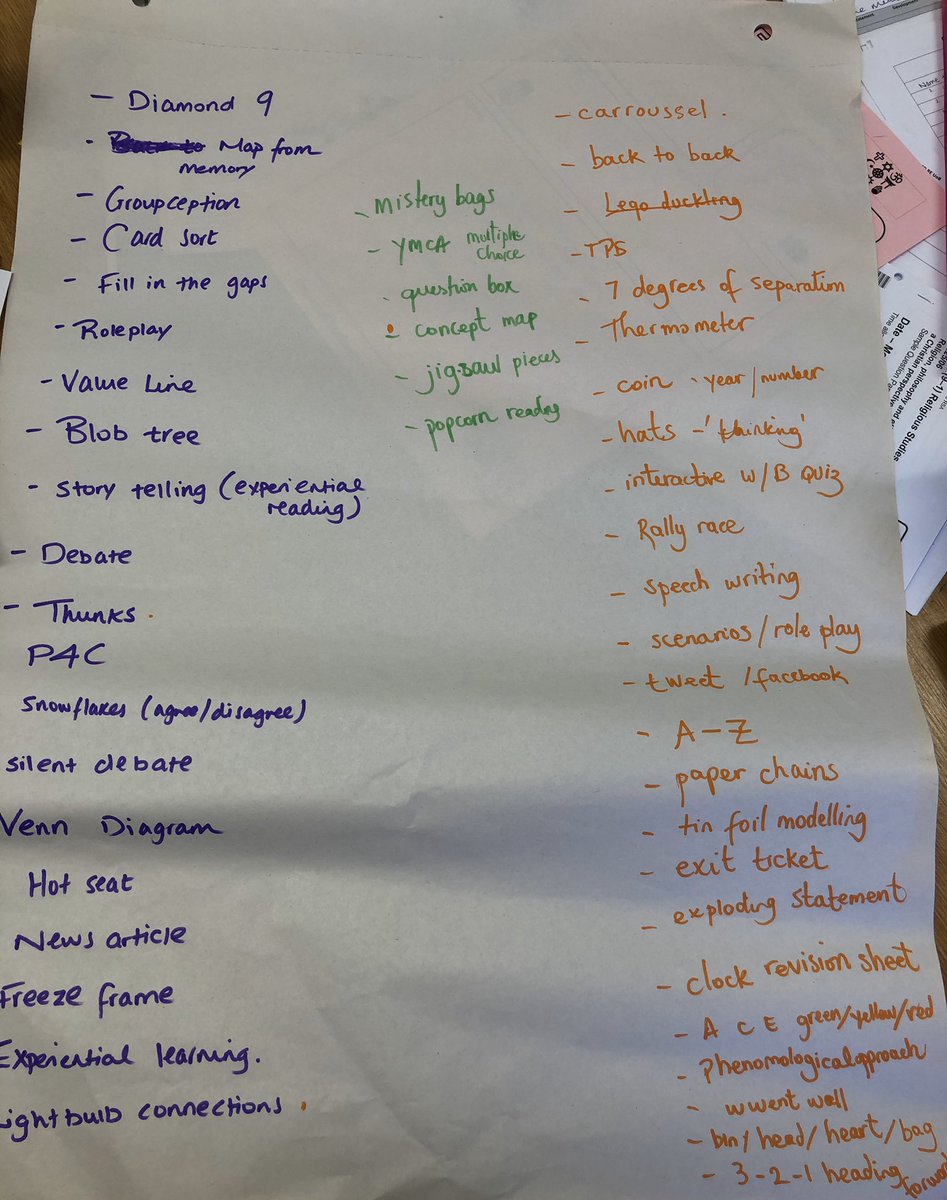 - Diamond 9
- Map from
memory
- Groupception
- Card sort
- Fill in the gaps
- Roleplay
- Value Line
- Blob tree
- Story telling (experiential
reading)
- Debate
- Thunks.
P4C
Snowflakes (agree/disagree)
silent debate
Venn Diagram
Hot seat
News article
Freeze frame
Experiential learning.
ightbulb connections
- mistery bags
- YMCA multiple
choice
- question box
- concept map
- jigsaw pieces
- popcorn reading
- carroussel.
- back to back
- Lego duckling
- TPS
- 7 degrees of separation
- Thermometer
- coin - year/number
- hats - 'thinking'
- interactive w/B QUIZ
- Rally race
- speech writing
- scenarios/role play
- tweet /facebook
- A-Z
- paper chains
- tin foil modelling
- exit ticket
- exploding statement
- clock revision sheet
- A C E green/yellow/red
- Phenomological approach
- wwent well
- bin/head/heart/bag
- 3-2-1 heading
forward
Religious Studies